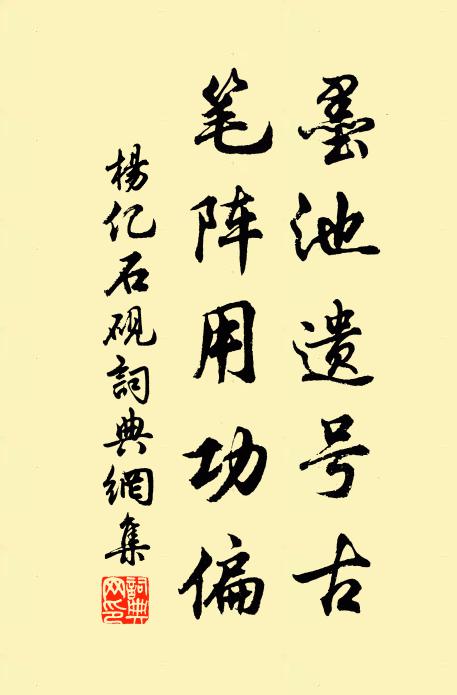 墨池遗号古
笔阵用功偏
杨亿石砚詞典網集
詞典网印